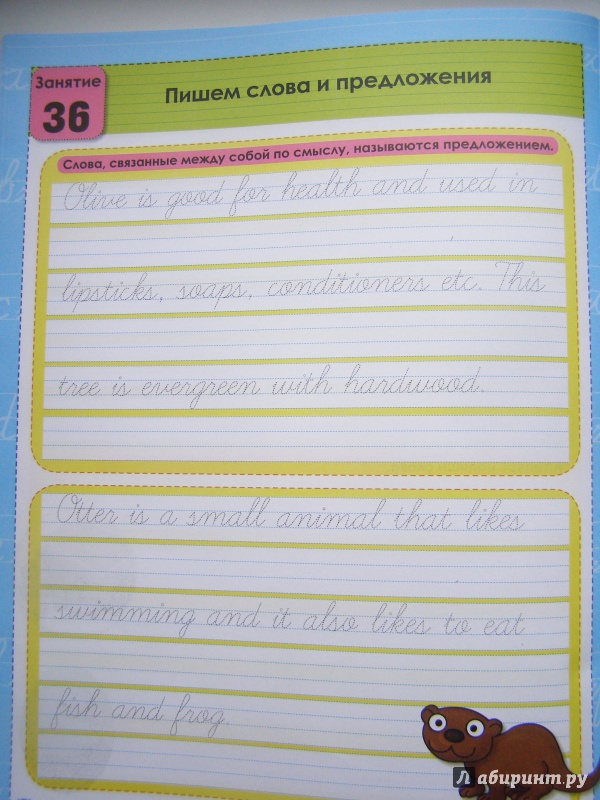 Занятие
36
Пишем слова и предложения
Слова, связанные между собой по смыслу, называются предложением.
Olive is good for health and used in
lipsticks, soaps, conditioners etc. This
tree is evergreen with hardwood.
Otter is a small animal that likes
swimming and it also likes to eat
fish and frog.
Лабиринт.ру